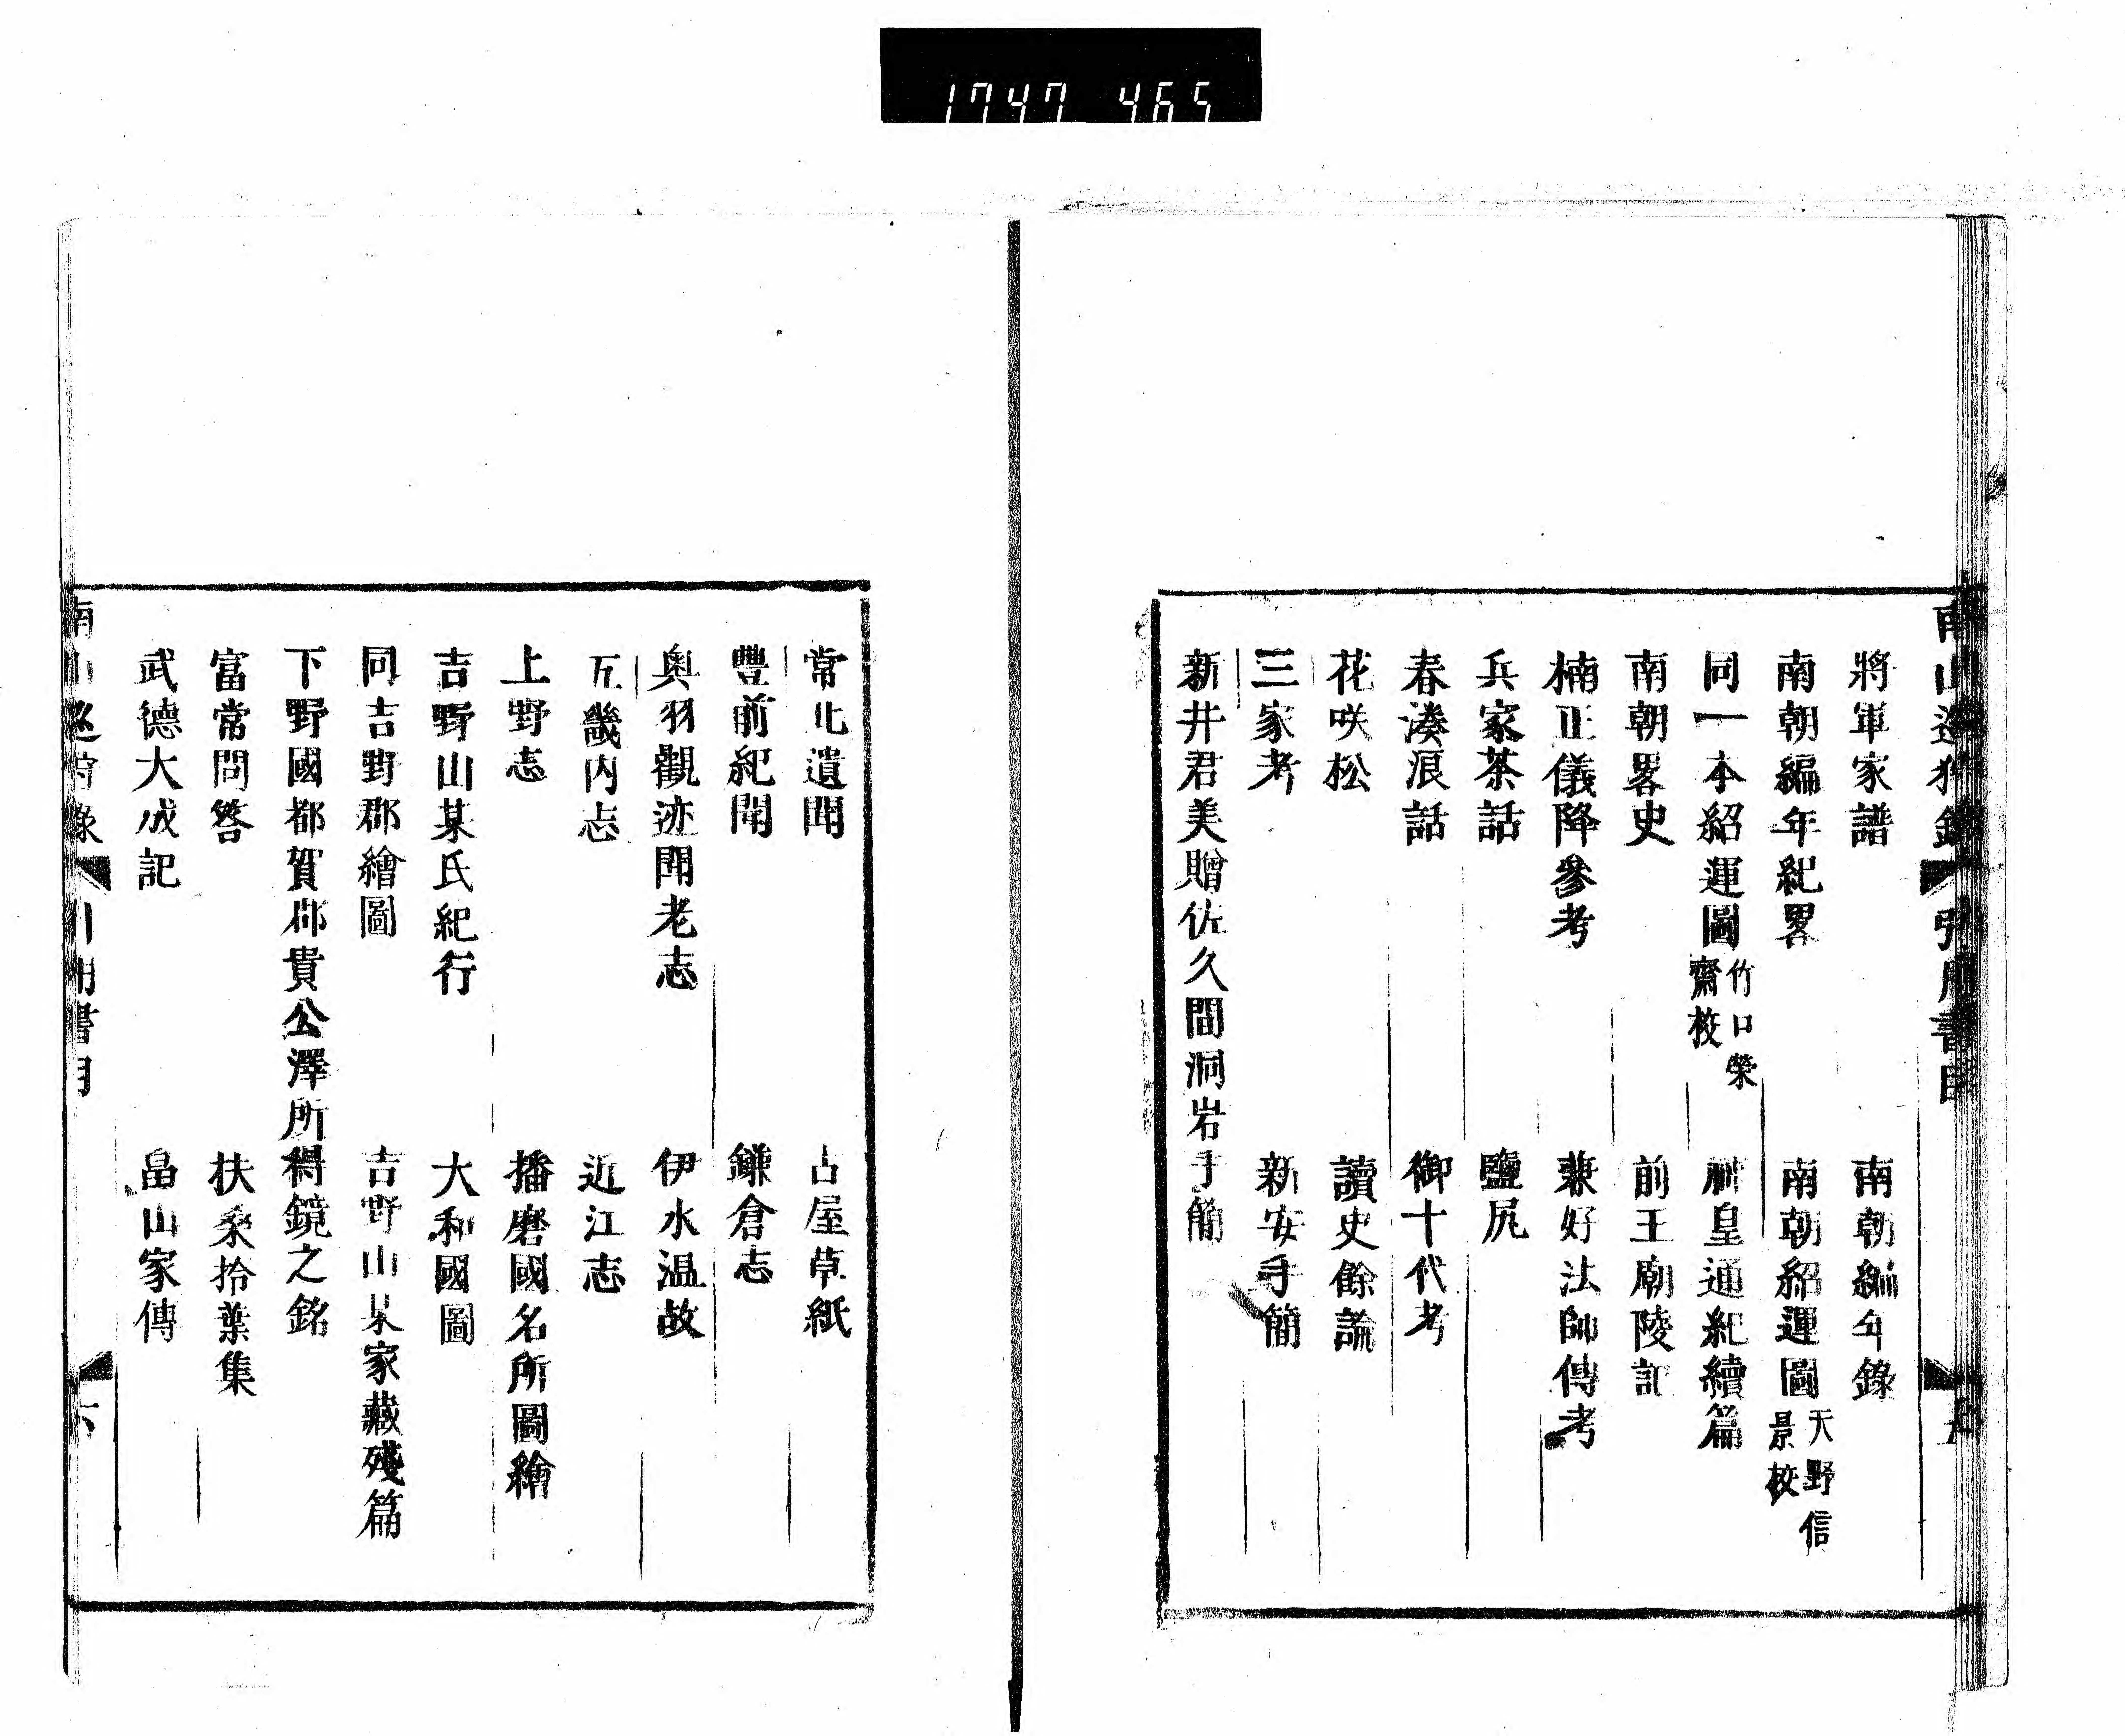 1747 465
南山巡狩錄 引用書目 五
將軍家譜 南朝編年錄
南朝編年紀畧 南朝紹運圖 天野信景校
同一本紹運圖 竹口榮齋校 神皇通紀續篇
南朝畧史 前王廟陵記
楠正儀降參考 兼好法師傳考
兵家茶話 鹽尻
春湊浪話 御十代考
花咲松 讀史餘論
三家考 新安手簡
新井君美贈佐久間洞岩手簡
常北遺聞 古屋草紙
豐前紀聞 鎌倉志
奥羽觀迹聞老志 伊水温故
五畿内志 近江志
上野志 播磨國名所圖繪
吉野山某氏紀行 大和國圖
同吉野郡繪圖 吉野山某家藏殘篇
下野國都賀郡貴公澤所得鏡之銘
富常問答 扶桑拾葉集
武德大成記 畠山家傳
南山巡狩錄 引用書目 六